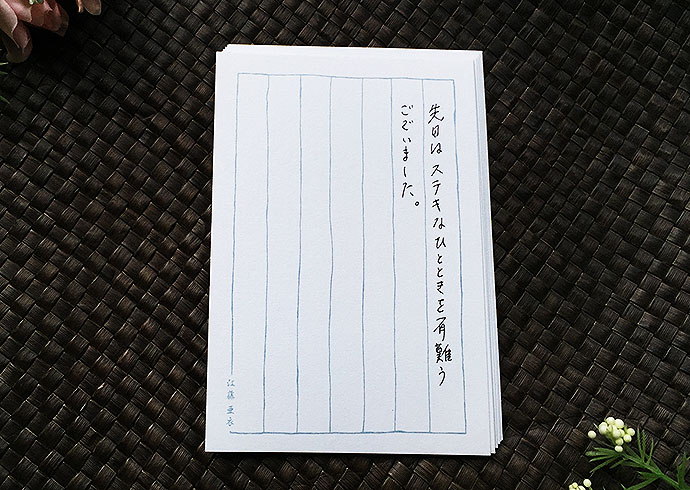 先日はステキなひとときを有難う
ございました。
江藤亜衣